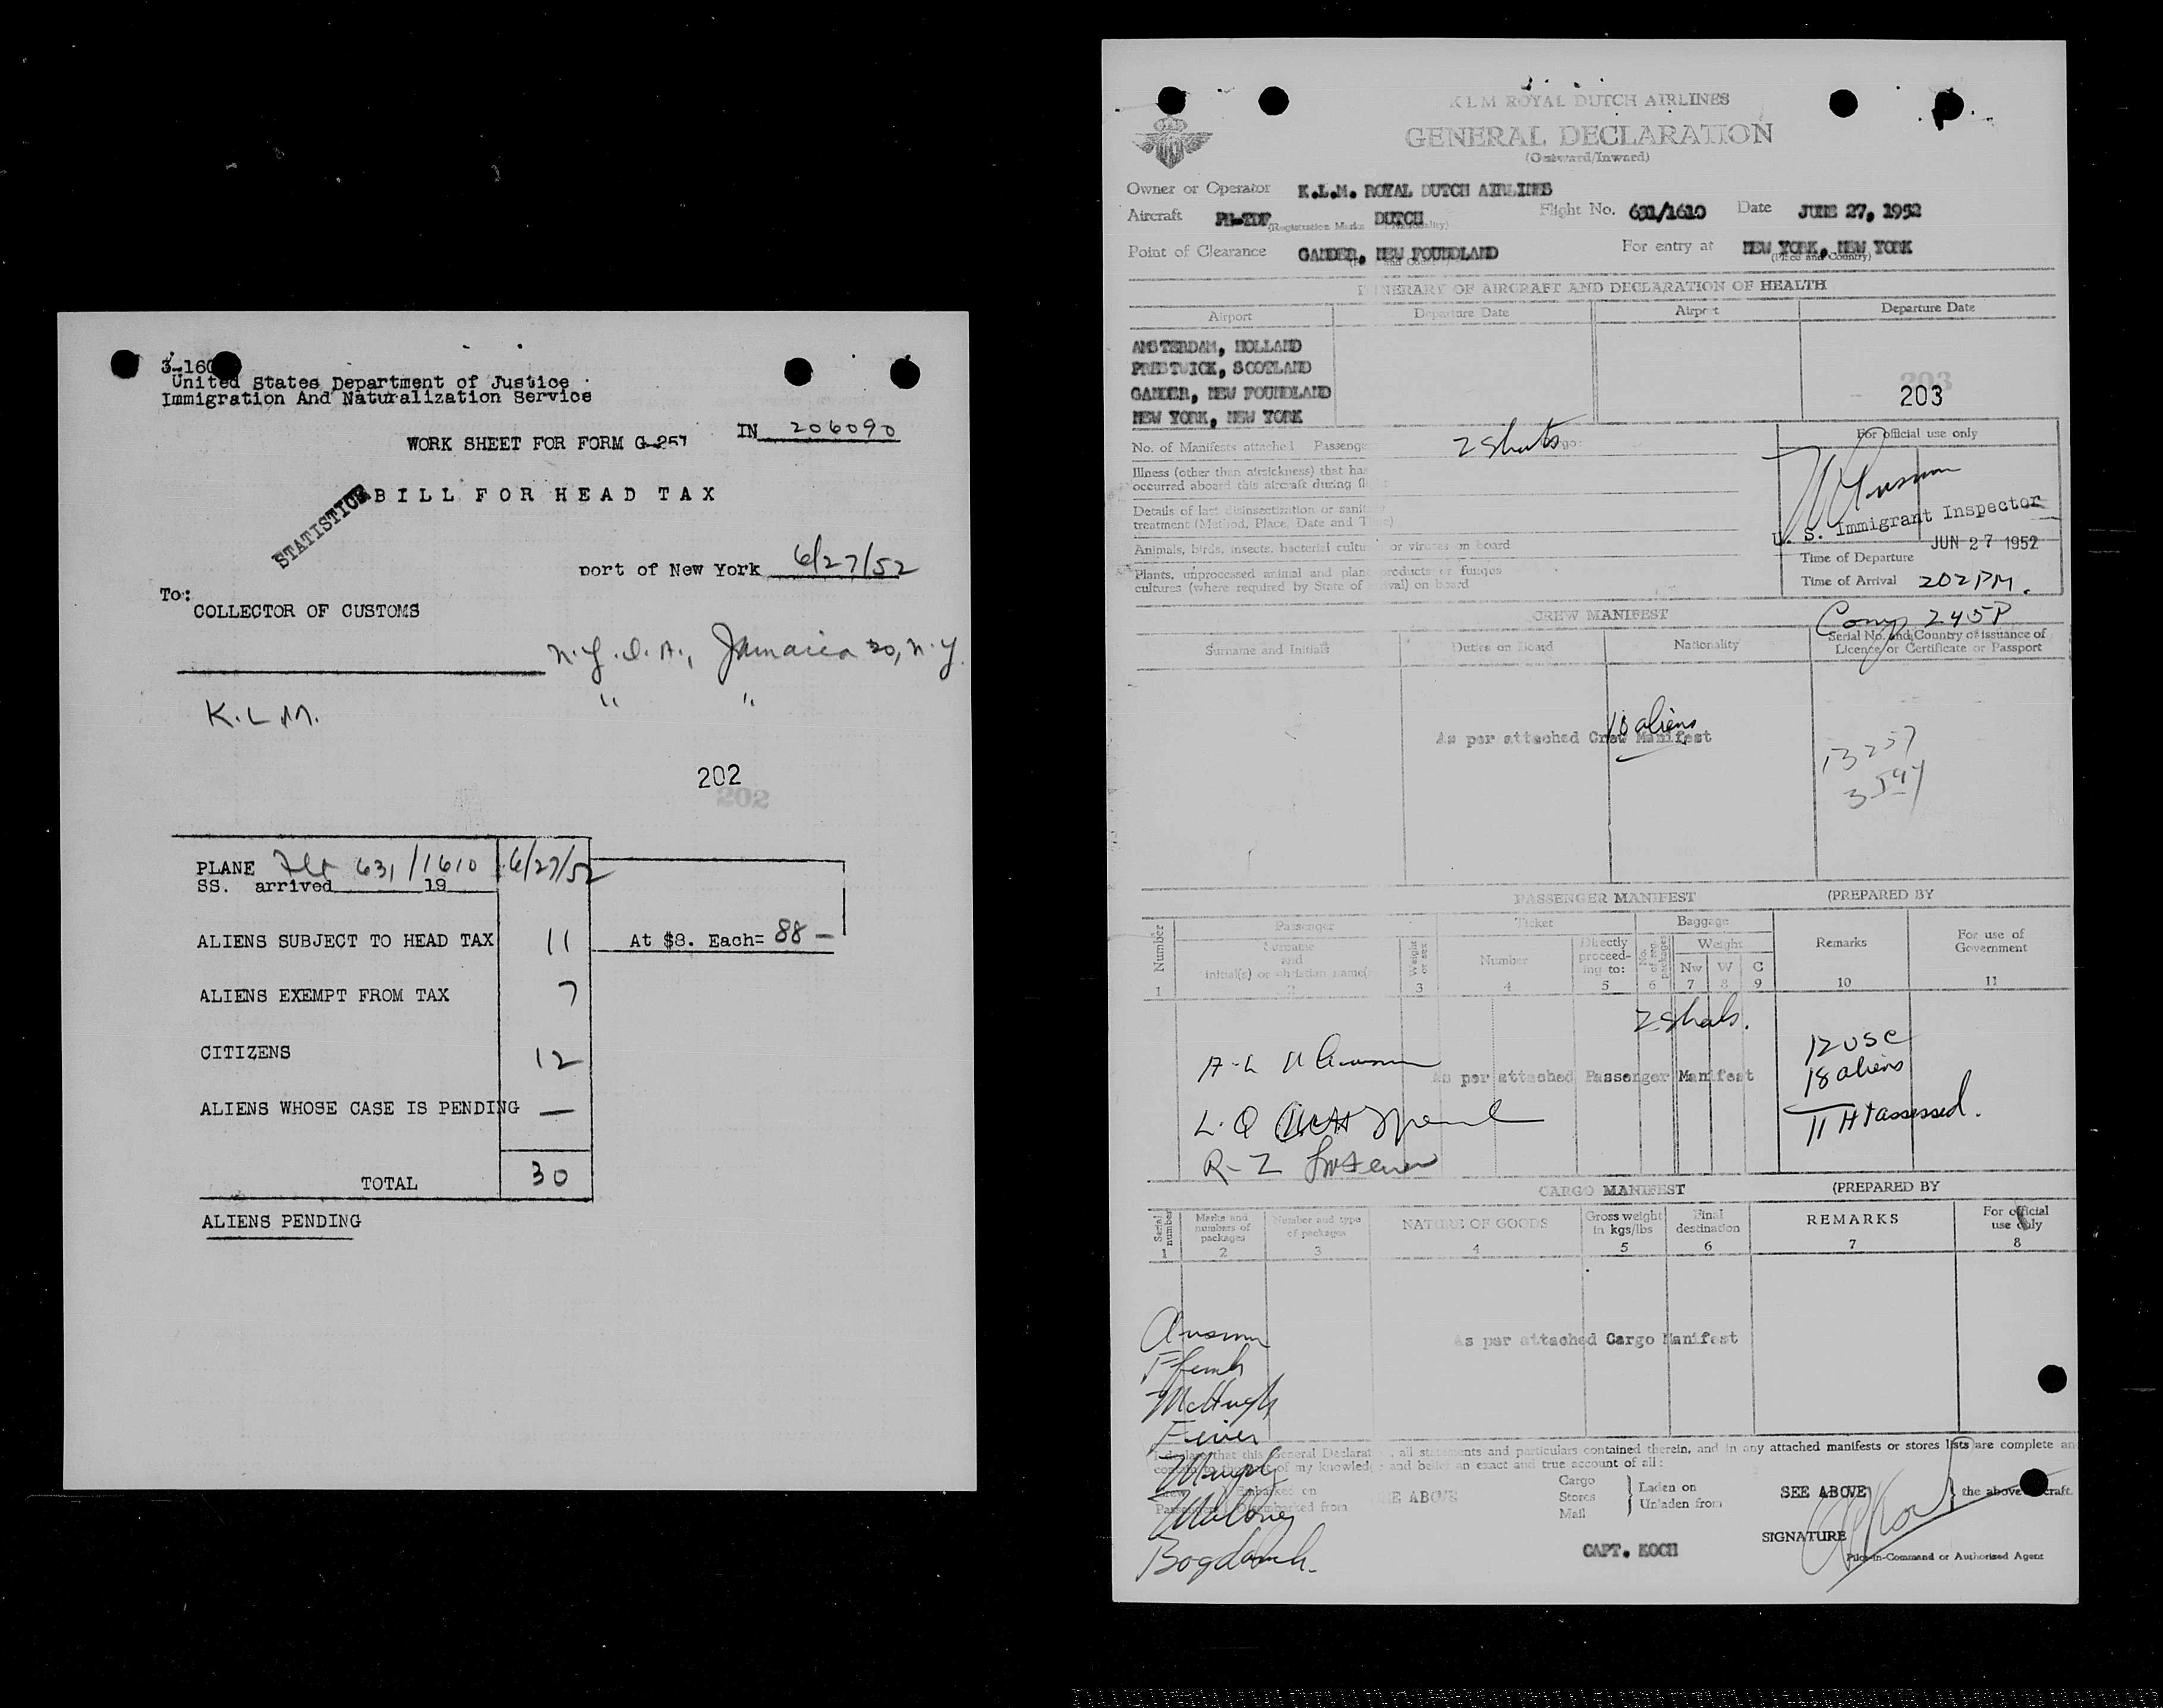 3-160
United States Department of Justice
Immigration And Naturalization Service
WORK SHEET FOR FORM G-257 IN 206090
STATISTICS
BILL FOR HEAD TAX
port of New York 6/27/52
To:
COLLECTOR OF CUSTOMS
N.Y.I.A., Jamaica 30, N.Y.
K.L.M. " "
202
202
PLANE Flt 631/1610 6/27/52
SS. arrived 19
ALIENS SUBJECT TO HEAD TAX 11 At $8. Each= 88 —
ALIENS EXEMPT FROM TAX 7
CITIZENS 12
ALIENS WHOSE CASE IS PENDING —
TOTAL 30
ALIENS PENDING
KLM ROYAL DUTCH AIRLINES
GENERAL DECLARATION
(Outward/Inward)
Owner or Operator K.L.M. ROYAL DUTCH AIRLINES
Aircraft PH-TDF DUTCH Flight No. 631/1610 Date JUNE 27, 1952
(Registration Marks Nationality)
Point of Clearance GANDER, NEW FOUNDLAND For entry at NEW YORK, NEW YORK
(Place and Country) (Place and Country)
ITINERARY OF AIRCRAFT AND DECLARATION OF HEALTH
Airport Departure Date Airport Departure Date
AMSTERDAM, HOLLAND
PRESTWICK, SCOTLAND
GANDER, NEW FOUNDLAND
NEW YORK, NEW YORK
203
203
No. of Manifests attached Passenger 2 Sheets Cargo:
For official use only
Illness (other than airsickness) that has
occurred aboard this aircraft during
Details of last disinsectization or sanitary
treatment (Method, Place, Date and Time)
U. S. Immigrant Inspector
JUN 27 1952
Animals, birds, insects, bacterial cultures or viruses on board
Time of Departure
Plants, unprocessed animal and plant products or fungus
cultures (where required by State of Arrival) on board
Time of Arrival 202 PM.
Comp 245P
CREW MANIFEST
Surname and Initials Duties on Board Nationality Serial No. and Country of issuance of
Licence or Certificate or Passport
10 aliens
As per attached Crew Manifest
PASSENGER MANIFEST (PREPARED BY
Number Passenger Ticket Baggage Remarks For use of Government
Surname and initial(s) or christian name(s) Weight or sex Number Directly proceeding to: No. of packages Weight
Nw W C
1 2 3 4 5 6 7 8 9 10 11
2 Sheets.
12 USC
18 aliens
As per attached Passenger Manifest
11 HT assessed.
CARGO MANIFEST (PREPARED BY
Serial number Marks and numbers of packages Number and type of packages NATURE OF GOODS Gross weight in kgs/lbs Final destination REMARKS For official use only
1 2 3 4 5 6 7 8
As per attached Cargo Manifest
McHugh
Murphy
Maloney
I declare that this General Declaration, all statements and particulars contained therein, and in any attached manifests or stores lists are complete an
correct to the best of my knowledge and belief an exact and true account of all:
Crew Passengers Embarked on Disembarked from SEE ABOVE
Cargo Stores Mail Laden on Unladen from SEE ABOVE the above aircraft.
CAPT. KOCH
SIGNATURE
Pilot-in-Command or Authorised Agent